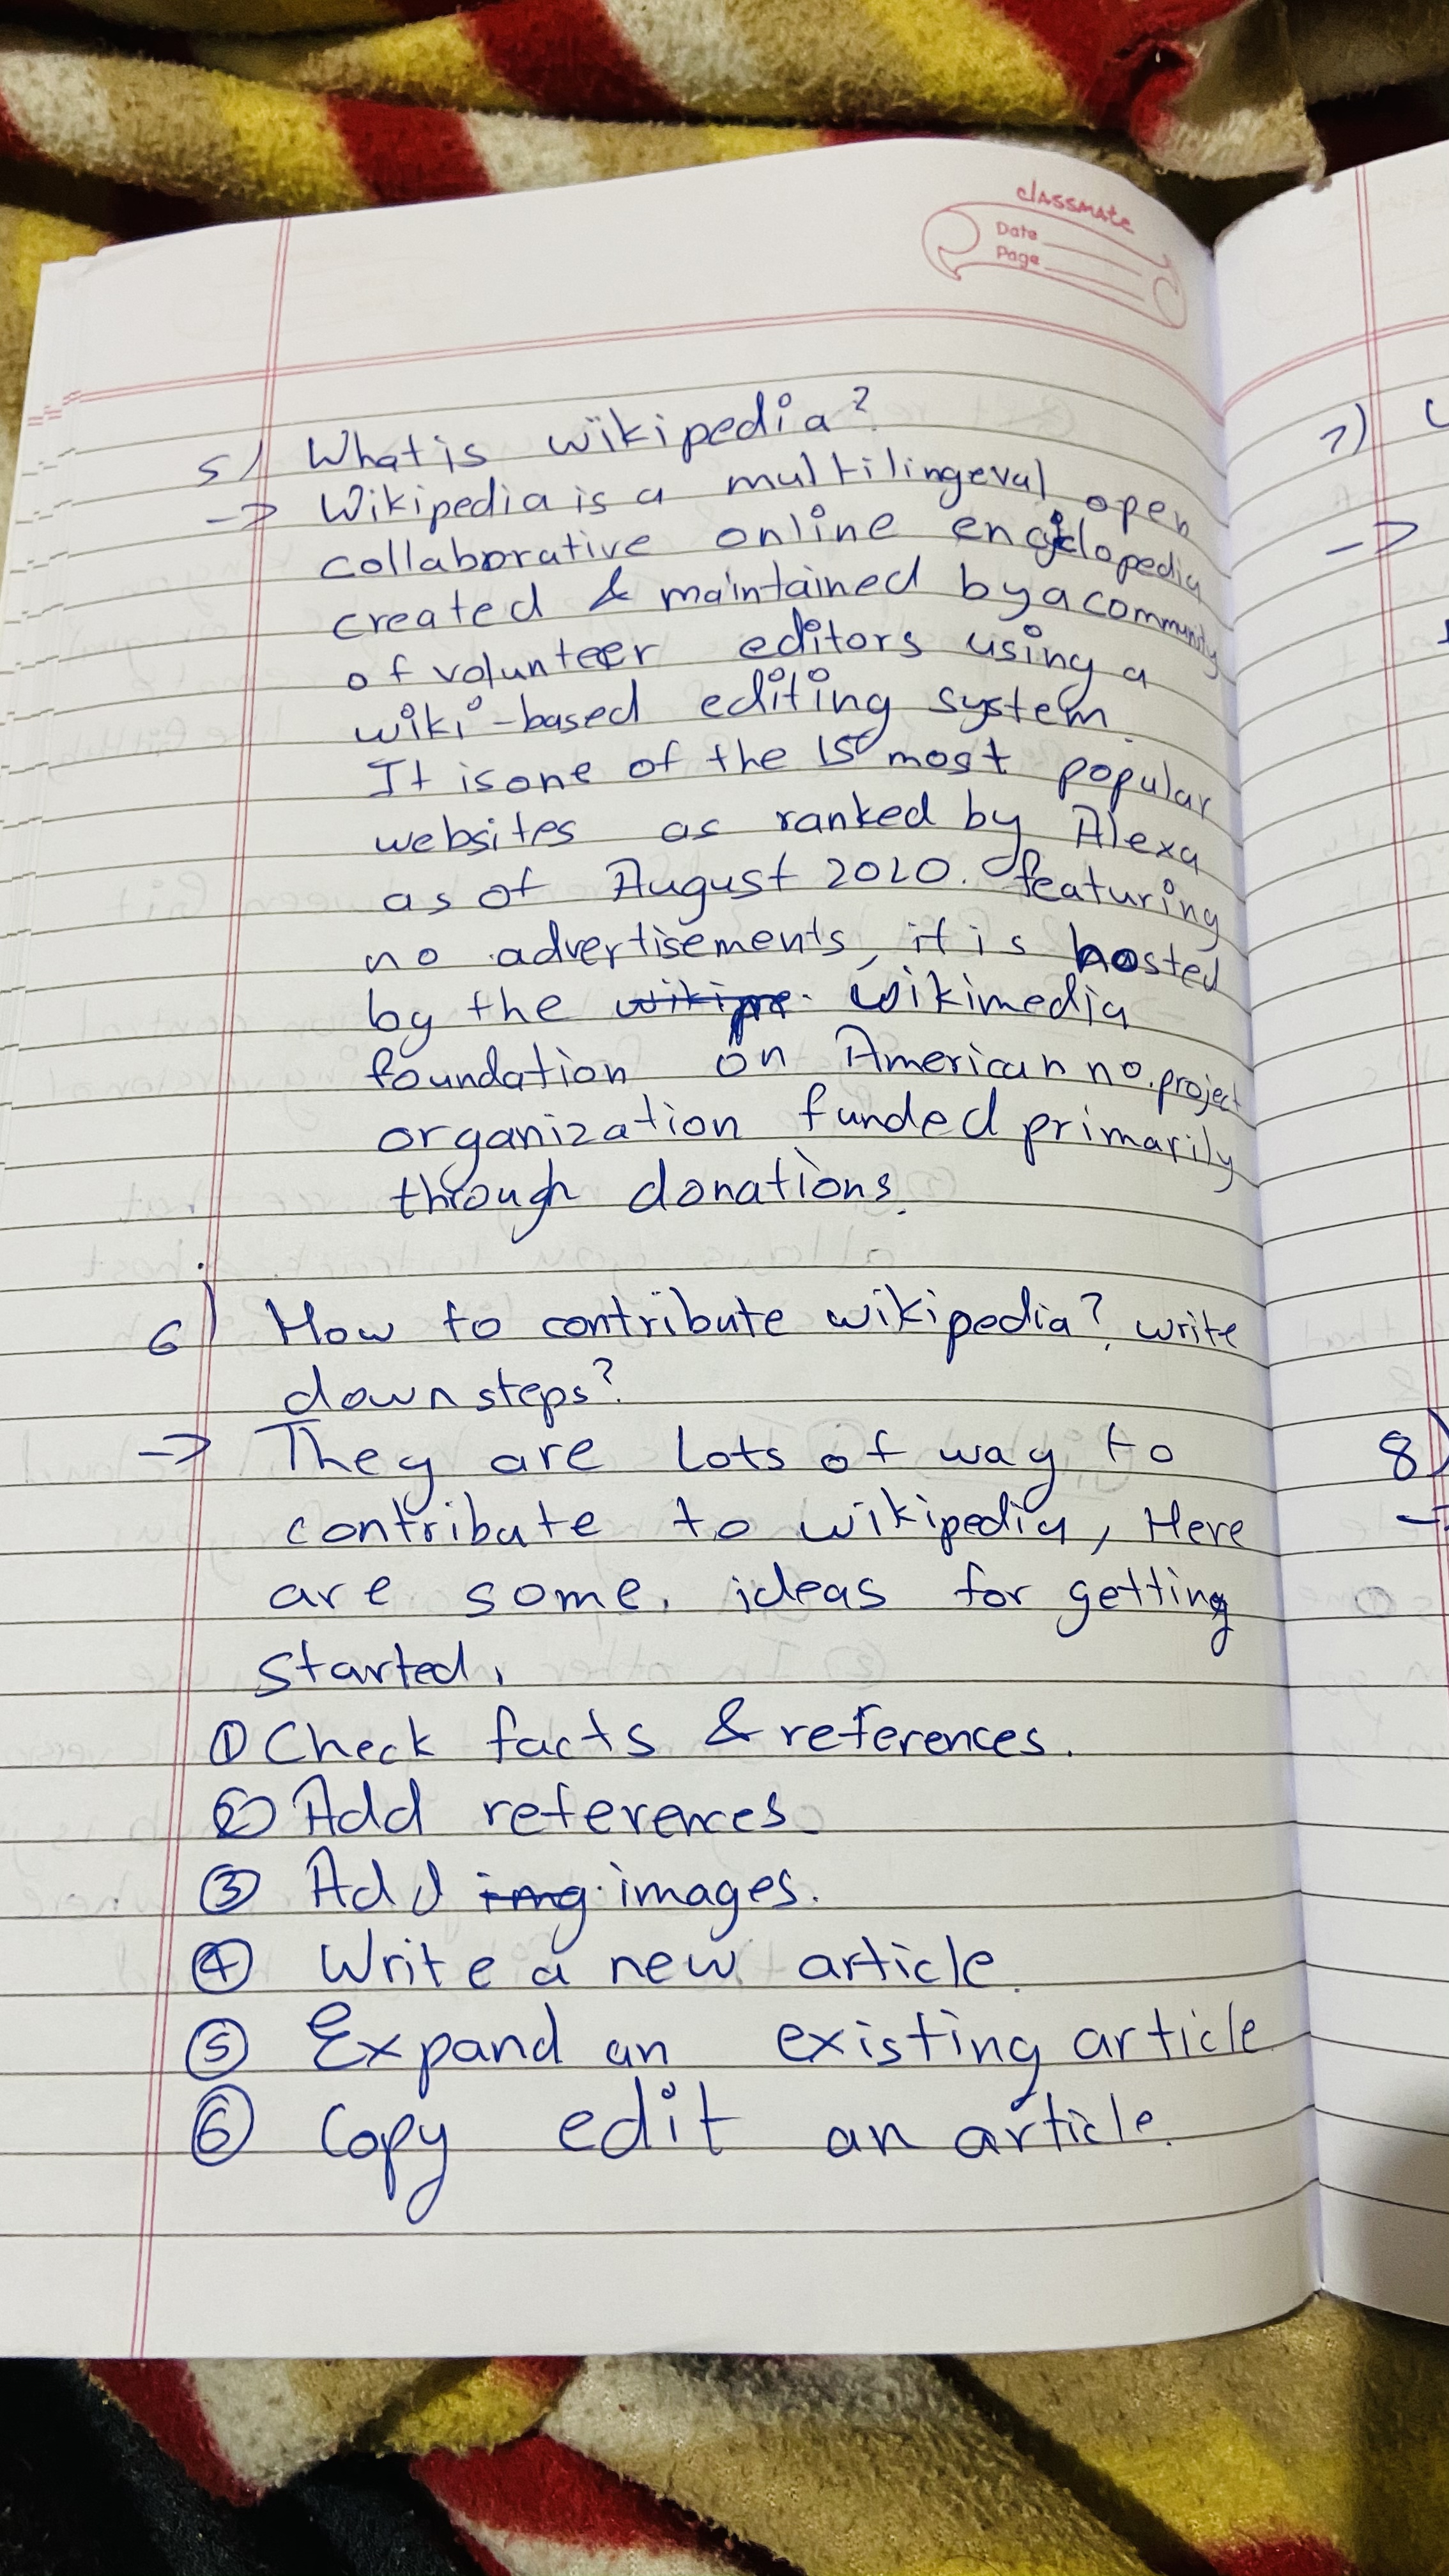 classmate
Date
Page
5) What is wikipedia?
-> Wikipedia is a multilingeval open
collaborative online encyclopedia
created & maintained by a community
of volunteer editors using a
wiki-based editing system.
It is one of the 15 most popular
websites as ranked by Alexa
as of August 2020. featuring
no advertisements, it is hosted
by the wikipe. wikimedia
foundation on American no.project
organization funded primarily
through donations.
6) How to contribute wikipedia? write
down steps?
-> They are lots of way to
contribute to wikipedia, Here
are some, ideas for getting
started,
① Check facts & references.
② Add references.
③ Add img images.
④ Write a new article.
⑤ Expand an existing article.
⑥ Copy edit an article.
7)
->
8)